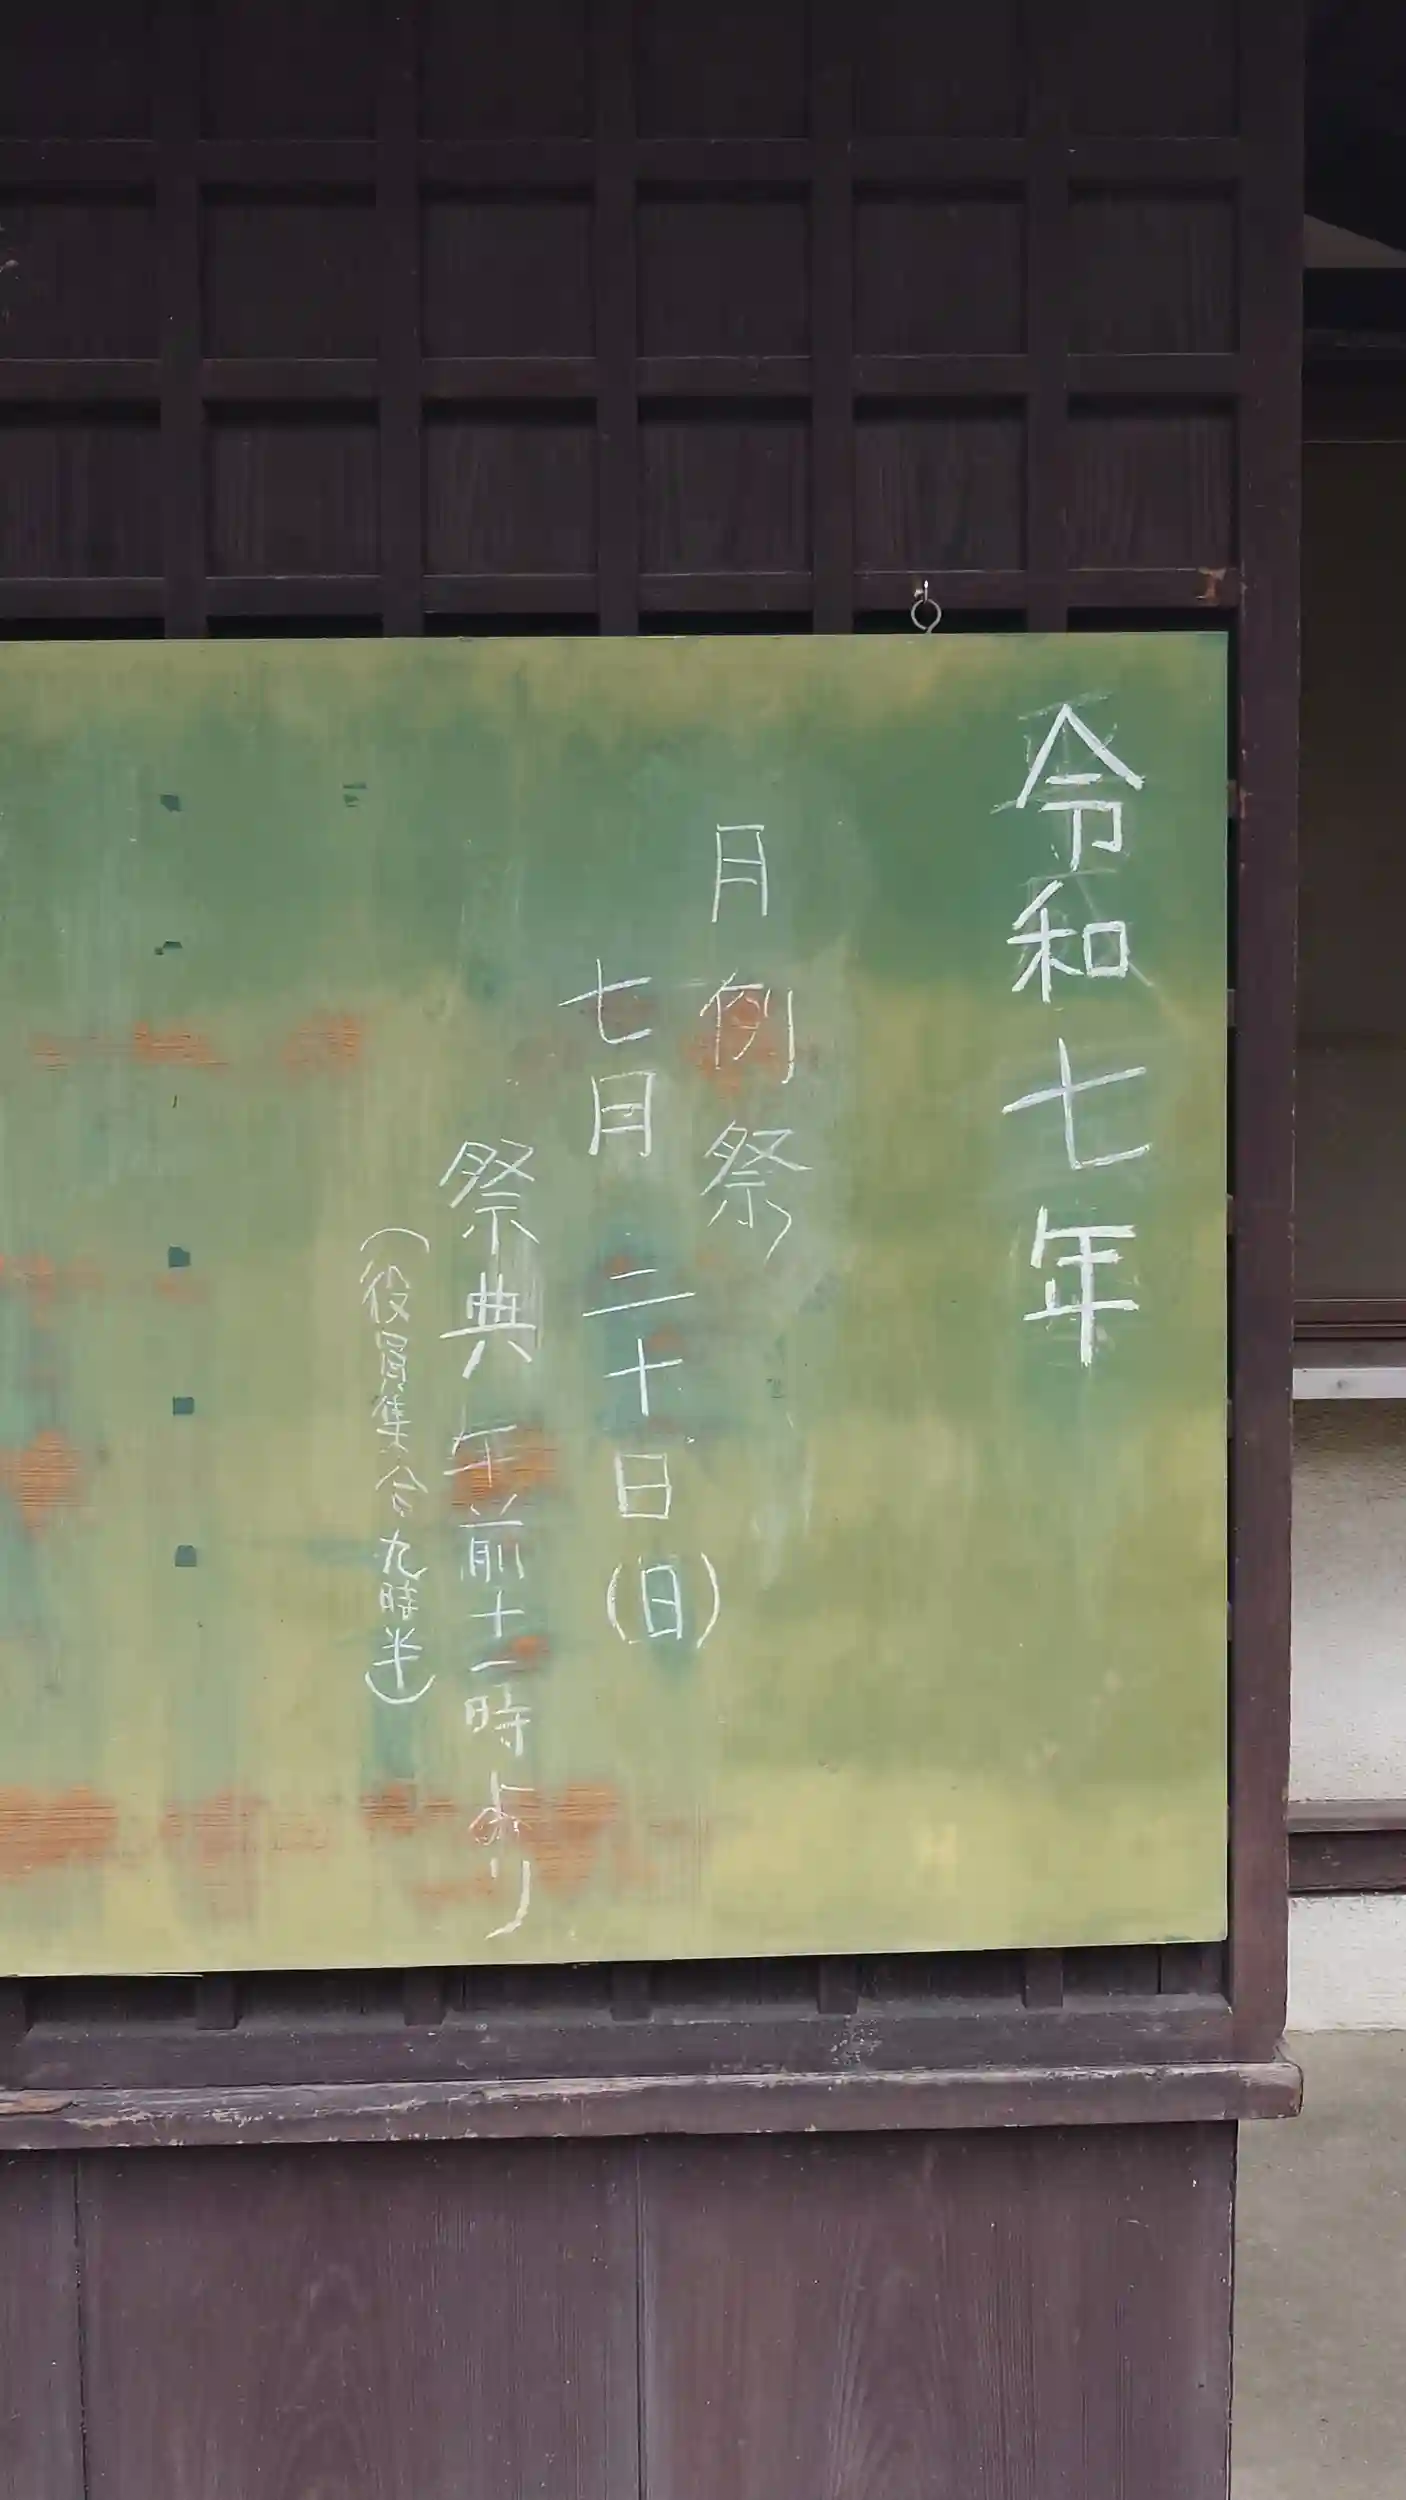 令和七年
月例祭
七月二十日(日)
祭典 午前十一時より
(役員集合九時半)